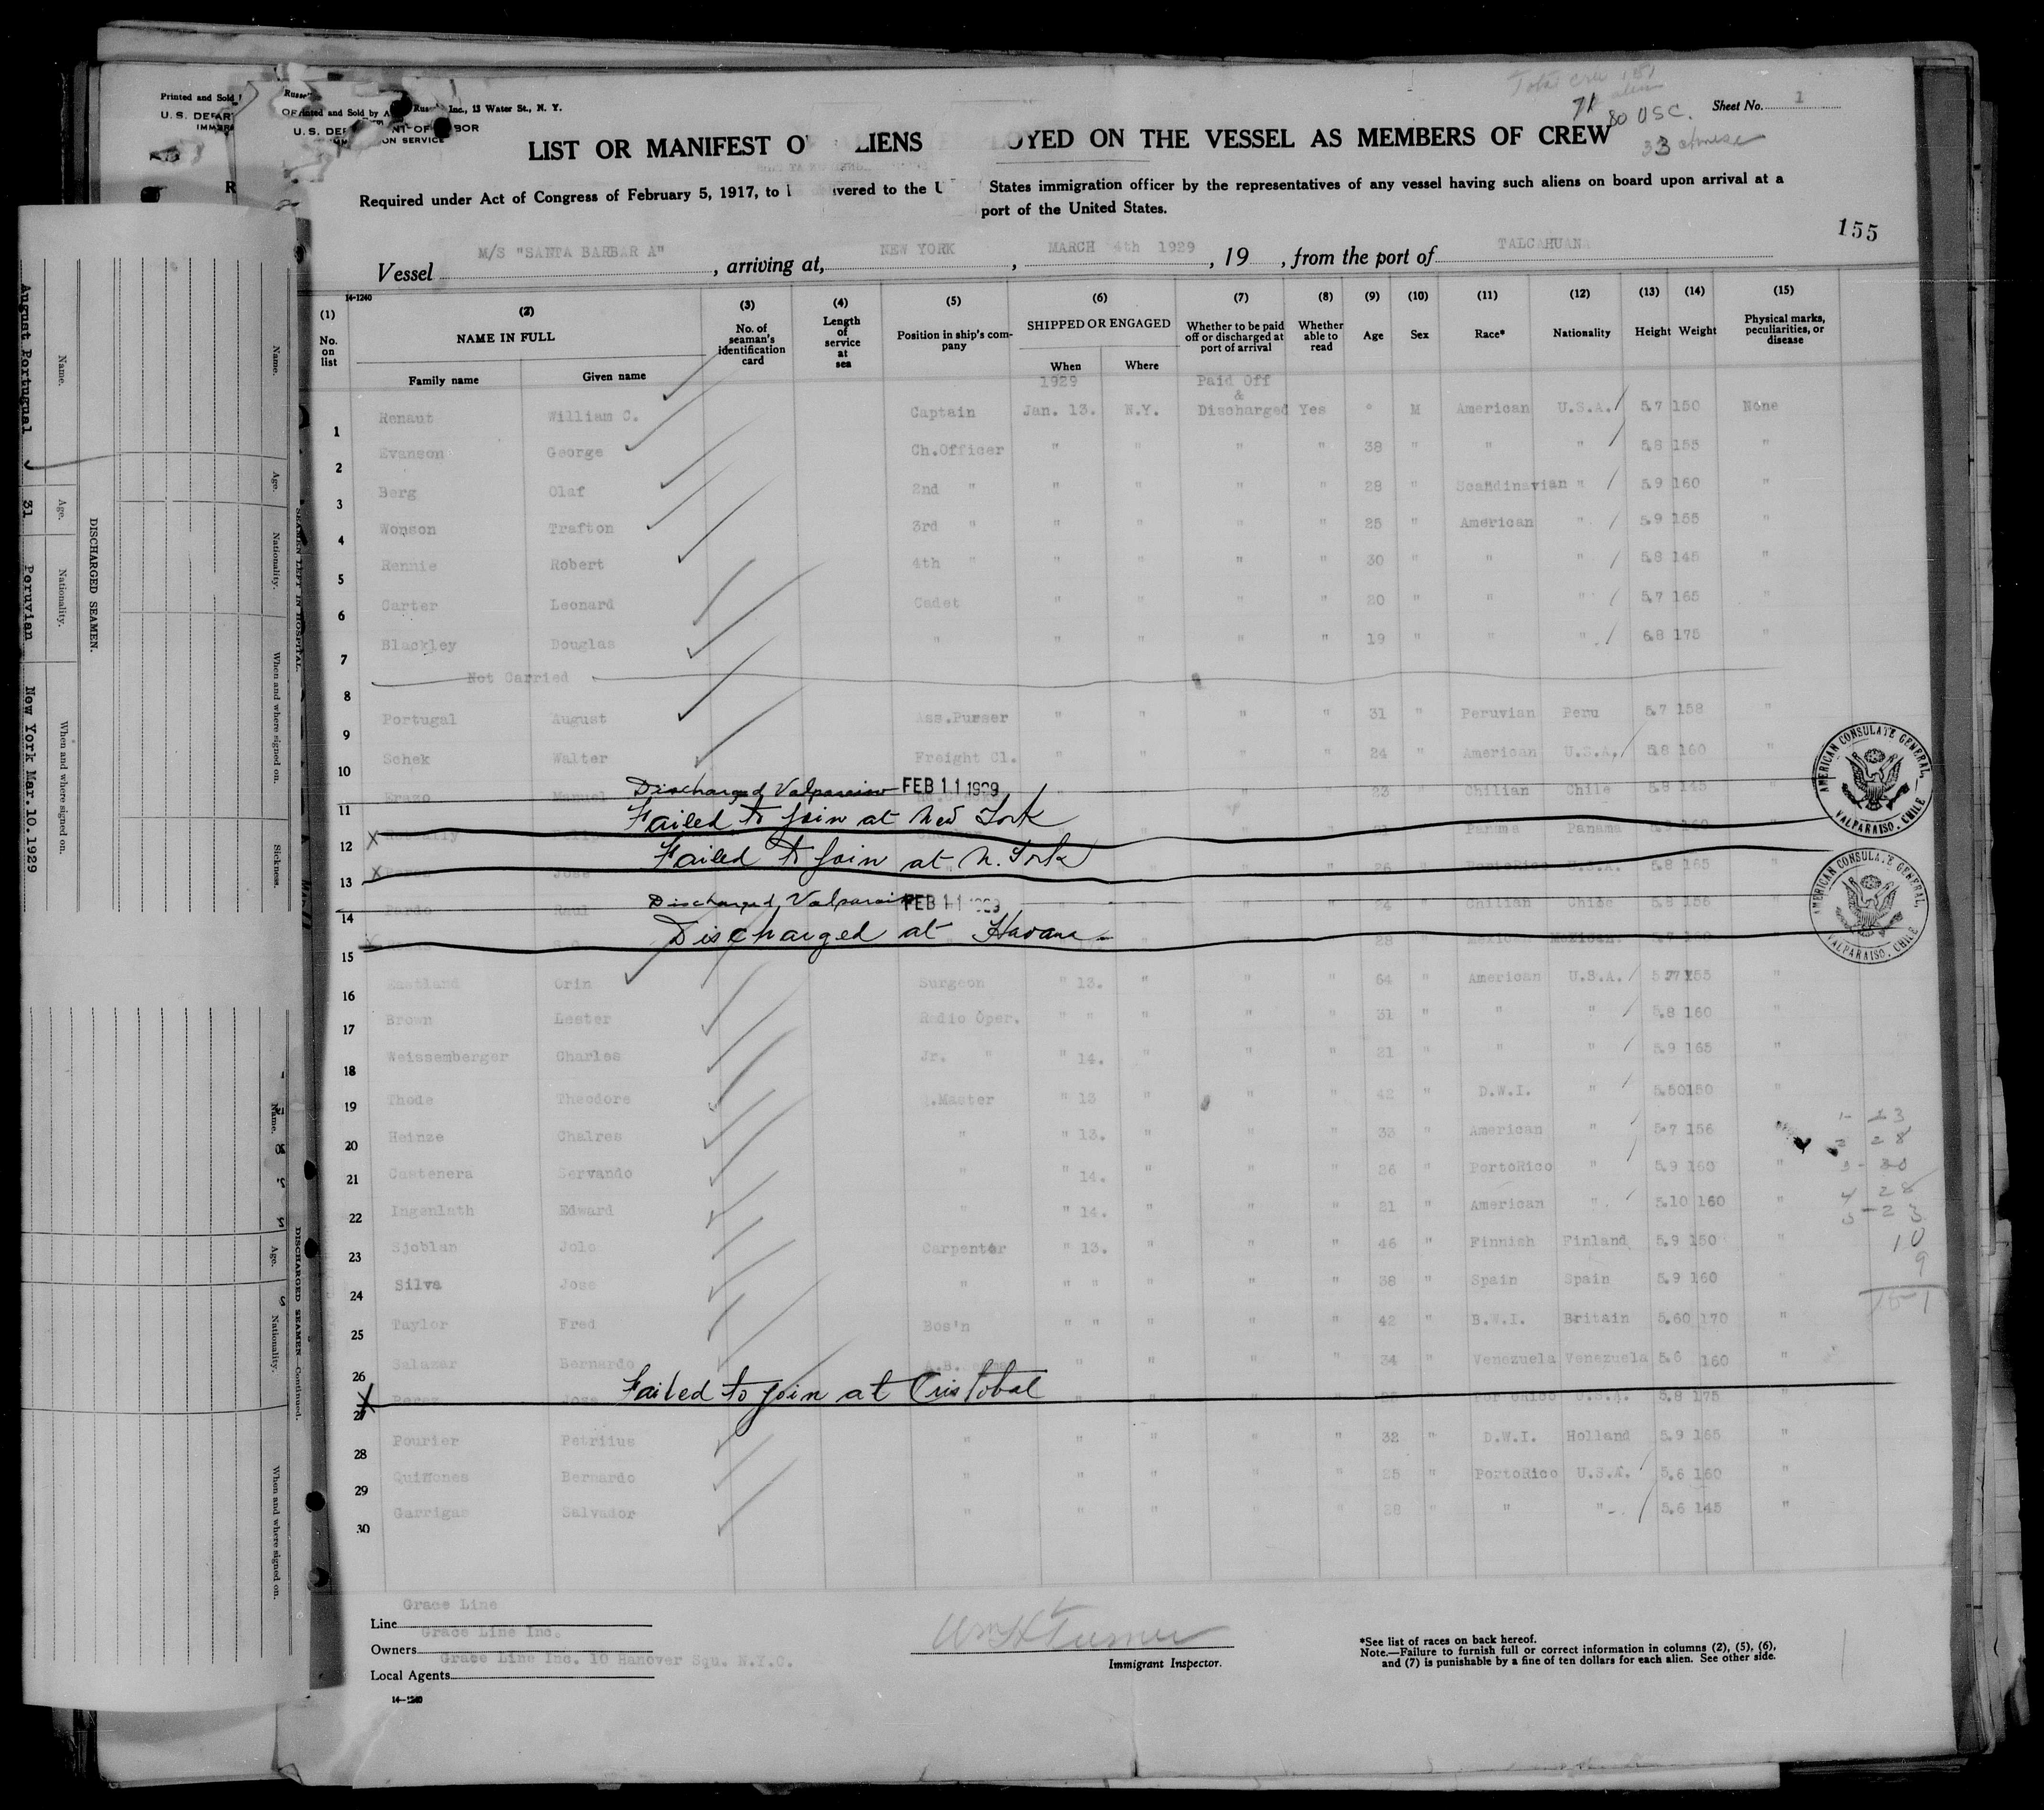 Printed and Sold by
Inc., 13 Water St., N. Y.
Total Crew 151
71 alien
80 USC.
33 chinese
Sheet No. 1
LIST OR MANIFEST OF ALIENS EMPLOYED ON THE VESSEL AS MEMBERS OF CREW
Required under Act of Congress of February 5, 1917, to be delivered to the United States immigration officer by the representatives of any vessel having such aliens on board upon arrival at a
port of the United States.
155
Vessel M/S "SANTA BARBAR A", arriving at, NEW YORK, MARCH 4th 1929, 19 , from the port of TALCAHUANA
14-1240
(1) (2) (3) (4) (5) (6) (7) (8) (9) (10) (11) (12) (13) (14) (15)
No. on list NAME IN FULL No. of seaman's identification card Length of service at sea Position in ship's company SHIPPED OR ENGAGED Whether to be paid off or discharged at port of arrival Whether able to read Age Sex Race* Nationality Height Weight Physical marks, peculiarities, or disease
Family name Given name When Where
1929 Paid Off
&
1 Renaut William C. Captain Jan. 13. N.Y. Discharged Yes M American U.S.A. 5.7 150 None
2 Evanson George Ch.Officer " " " " 38 " " " 5.8 155 "
3 Berg Olaf 2nd " " " " " 28 " Scandinavian " 5.9 160 "
4 Wonson Trafton 3rd " " " " " 25 " American " 5.9 155 "
5 Rennie Robert 4th " " " " " 30 " " " 5.8 145 "
6 Carter Leonard Cadet " " " " 20 " " " 5.7 165 "
7 Blackley Douglas " " " " " 19 " " " 6.8 175 "
8 Not Carried
9 Portugal August Ass.Purser " " " " 31 " Peruvian Peru 5.7 158 "
10 Schek Walter Freight Cl. " " " " 24 " American U.S.A. 5.8 160 "
11 Erazo Manuel Discharged Valparaiso FEB 11 1929 " 23 " Chilian Chile 5.8 145 "
12 Failed to join at New York Panama Panama
13 Jose Failed to join at N. York 26 " PortoRico U.S.A. 5.8 165 "
14 Pardo Raul Discharged Valparaiso FEB 11 1929 24 " Chilian Chile 5.8 156 "
15 Discharged at Havana 28 " Mexican Mexican.
AMERICAN CONSULATE GENERAL, VALPARAISO, CHILE
AMERICAN CONSULATE GENERAL, VALPARAISO, CHILE
16 Eastland Orin Surgeon " 13. " " " 64 " American U.S.A. 155 "
17 Brown Lester Radio Oper. " " " " " 31 " " " 5.8 160 "
18 Weissemberger Charles Jr. " " 14. " " " 21 " " " 5.9 165 "
19 Thode Theodore Q.Master " 13 " " " 42 " D.W.I. " 5.50 150 "
20 Heinze Chalres " " 13. " " " 33 " American " 5.7 156 "
21 Castenera Servando " " 14. " " " 26 " PortoRico " 5.9 160 "
22 Ingenlath Edward " " 14. " " " 21 " American " 5.10 160 "
23 Sjoblan Jolo Carpenter " 13. " " " 46 " Finnish Finland 5.9 150 "
24 Silva Jose " " " " " " 38 " Spain Spain 5.9 160 "
25 Taylor Fred Bos'n " " " " " 42 " B.W.I. Britain 5.60 170 "
26 Salazar Bernardo " " " " 34 " Venezuela Venezuela 5.6 160 "
27 Perez Jose Failed to join at Cristobal U.S.A. 5.8 175 "
28 Fourier Petriius " " " " " 32 " D.W.I. Holland 5.9 165 "
29 Quiffones Bernardo " " " " " 25 " PortoRico U.S.A. 5.6 160 "
30 Garrigas Salvador " " " " " 28 " " " 5.6 145 "
1- 23
2 28
3- 30
4 28
5- 23
10
9
151
Line Grace Line
Owners Grace Line Inc.
Local Agents Grace Line Inc. 10 Hanover Squ. N.Y.C.
14-1240
Wm H Turner
Immigrant Inspector.
*See list of races on back hereof.
Note.—Failure to furnish full or correct information in columns (2), (5), (6),
and (7) is punishable by a fine of ten dollars for each alien. See other side.
DISCHARGED SEAMEN.
Name. Age. Nationality. When and where signed on.
August Portugual 31 Peruvian New York Mar.10.1929
SEAMEN LEFT IN HOSPITAL.
Name. Age. Nationality. When and where signed on. Sickness.
DISCHARGED SEAMEN—Continued.
Name. Age. Nationality. When and where signed on.